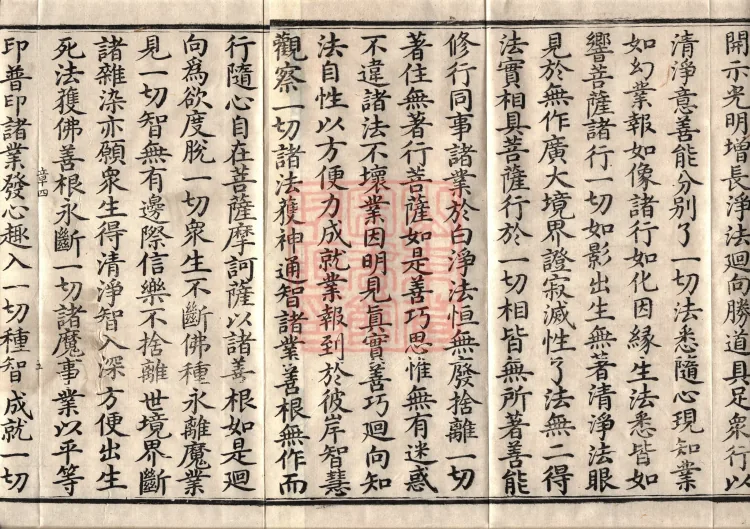 開示光明增長淨法廻向勝道具足衆行以
清淨意善能分别了一切法悉隨心現知業
如幻業報如像諸行如化因緣生法悉皆如
響菩薩諸行一切如影出生無著清淨法眼
見於無作廣大境界證寂滅性了法無二得
法實相具菩薩行於一切相皆無所著善能
修行同事諸業於白淨法恒無廢捨離一切
著住無著行菩薩如是善巧思惟無有迷惑
不違諸法不壞業因明見真實善巧廻向知
法自性以方便力成就業報到於彼岸智慧
觀察一切諸法獲神通智諸業善根無作而
行隨心自在菩薩摩訶薩以諸善根如是廻
向爲欲度脫一切衆生不斷佛種永離魔業
見一切智無有邊際信樂不捨離世境界斷
諸雜染亦願衆生得清淨智入深方便出生
死法獲佛善根永斷一切諸魔事業以平等
章四
印普印諸業發心趣入一切種智成就一切